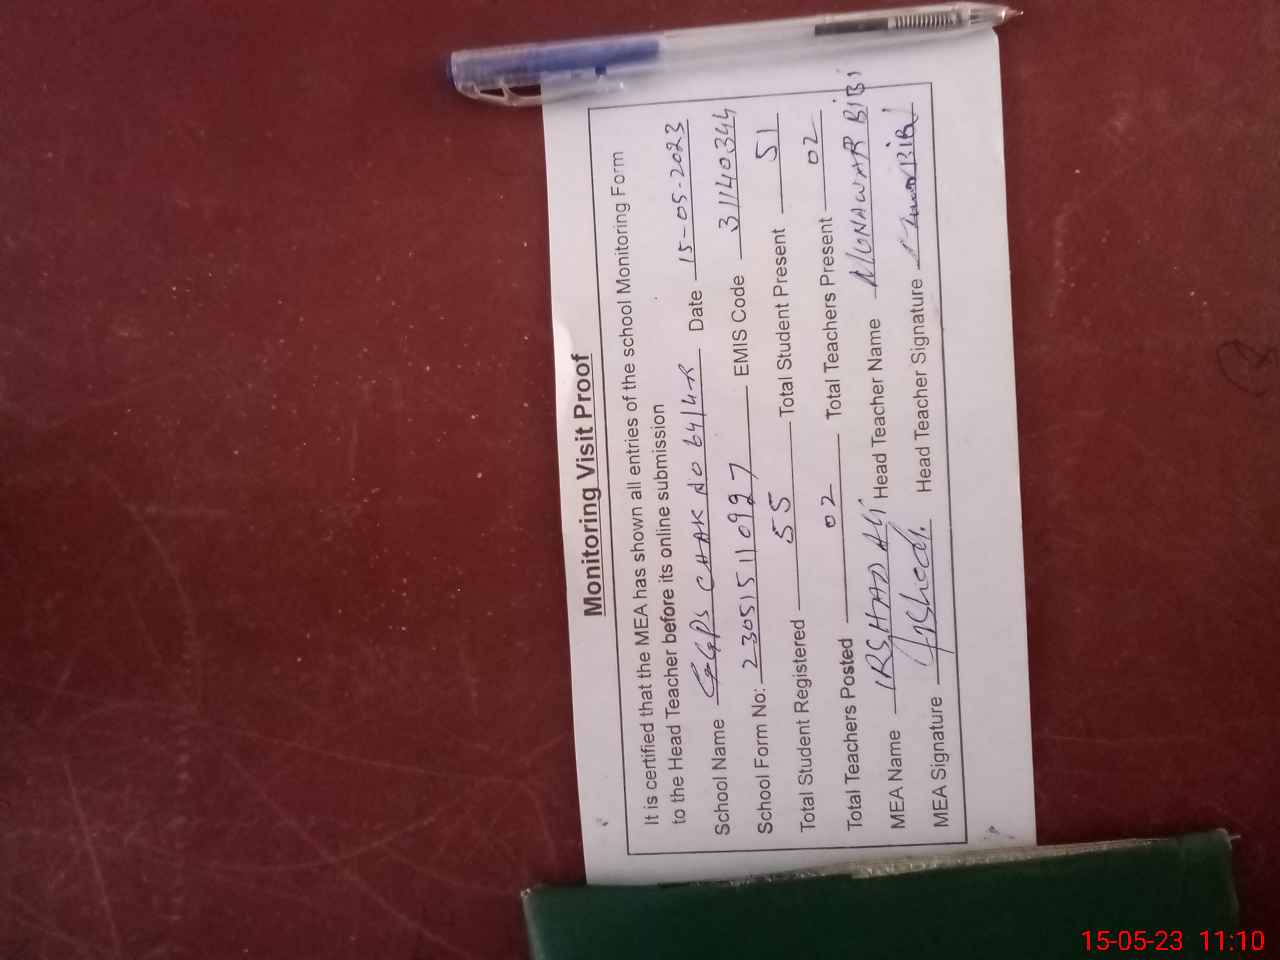 Monitoring Visit Proof
It is certified that the MEA has shown all entries of the school Monitoring Form
to the Head Teacher before its online submission
School Name GGPS CHAK NO 64/4-R Date 15-05-2023
School Form No: 230515110927 EMIS Code 31140344
Total Student Registered 55 Total Student Present 51
Total Teachers Posted 02 Total Teachers Present 02
MEA Name IRSHAD ALI Head Teacher Name MUNAWAR BIBI
MEA Signature Irshad Head Teacher Signature BIBI
15-05-23 11:10